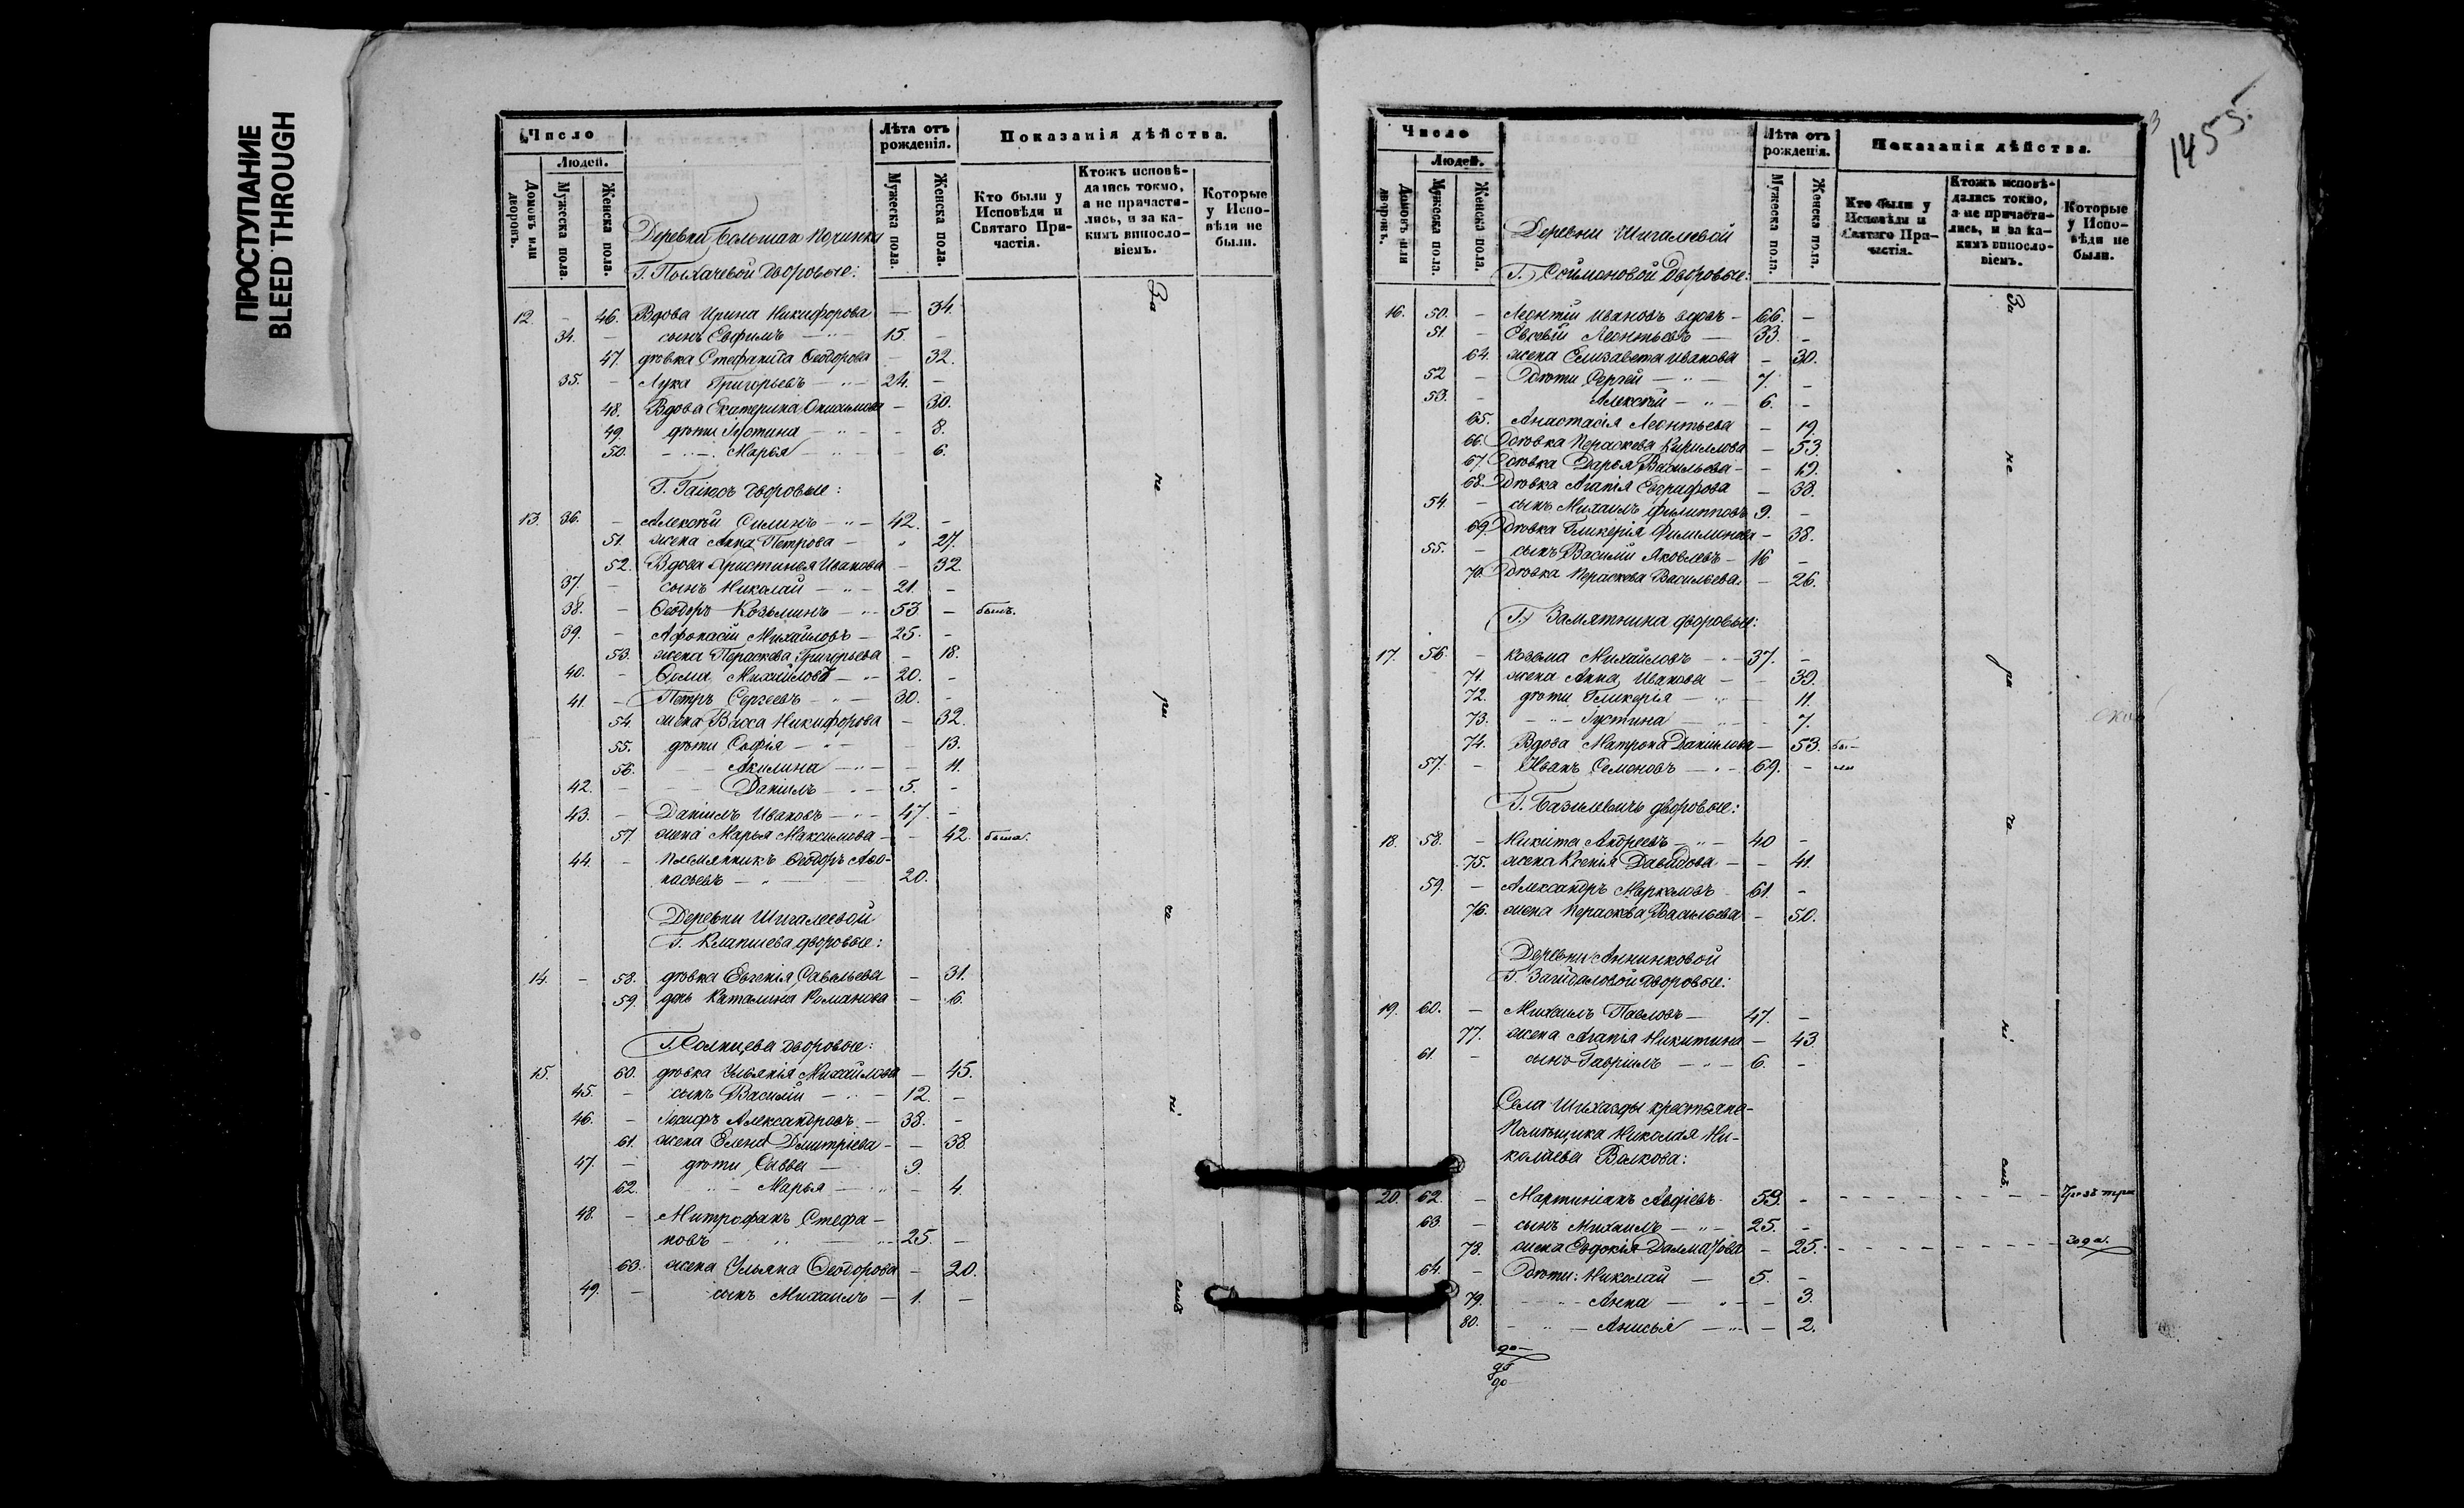 ПРОСТУПАНИЕ
BLEED THROUGH
Число
Людей.
Домовъ или дворовъ.
Мужеска пола.
Женска пола.
Лѣта отъ рожденія.
Мужеска пола.
Женска пола.
Показанія дѣйства.
Кто были у Исповѣди и Святаго Причастія.
Ктожъ исповѣдались токмо, а не причастились, и за какимъ винословіемъ.
Которые у Исповѣди не были.
Деревни Большая Починки
Г. Полхачевой дворовые:
12. - 46. Вдова Ирина Никифорова - 34.
34. - сынъ Евфимъ - 15. -
47. дѣвка Стефанида Ѳеодорова - 32.
35. - Лука Григорьевъ - 24. -
48. Вдова Екатерина - 30.
49. дѣти Іустина - 8.
50. - Марья - 6.
дворовые:
13. 36. - Алексѣй Силинъ - 42. -
51. жена Анна Петрова - 27.
52. Вдова Христинья Иванова - 32.
37. - сынъ Николай - 21. -
38. - Ѳеодоръ Козьминъ - 53 - былъ.
39. - Афонасій Михайловъ - 25. -
53. жена Параскева Григорьева - 18.
40. - Ѳома Михайловъ - 20. -
41. - Петръ Сергеевъ - 30. -
54 жена Васса Никифорова - 32.
55. дѣти Софія - 13.
56. - Акилина - 11.
42. - Даніилъ - 5. -
43. - Даніилъ Ивановъ - 47. -
57. жена Марья Максимова - 42. была.
44. - племянникъ Ѳеодоръ Аѳо-
насьевъ - 20.
Деревни Шигалеевой
Г. дворовые:
14. - 58. дѣвка Евгенія Савельева - 31.
59. дочь Каталина Романова - 6.
Г. Солнцева дворовые:
15. 60. дѣвка Ульянія Михайлова - 45.
45. - сынъ Василій - 12. -
46. - Іосифъ Александровъ - 38. -
61. жена Елена Дмитріева - 38.
47. - дѣти Савва - 9.
62. - Марья - 4.
48. - Митрофанъ Стефа-
новъ - 25. -
63. жена Ульяна Ѳеодорова - 20.
49. - сынъ Михаилъ - 1. -
За
не
ра
че
ні
емъ
1455.
Число
Людей.
Домовъ или дворовъ.
Мужеска пола.
Женска пола.
Лѣта отъ рожденія.
Мужеска пола.
Женска пола.
Показанія дѣйства.
Кто были у Исповѣди и Святаго Причастія.
Ктожъ исповѣдались токмо, а не причастились, и за какимъ винословіемъ.
Которые у Исповѣди не были.
Деревни Шигалеевой
Г. Соймоновой дворовые:
16. 50. - Леонтій Ивановъ вдовъ - 66. -
51. - Евсевій Леонтьевъ - 33. -
64. жена Елизавета Иванова - 30.
52 - Дѣти Сергей - 7. -
53. - Алексѣй - 6. -
65. Анастасія Леонтьева - 19.
66. Дѣвка Параскева Кириллова - 53.
67. Дѣвка Дарья Васильева - 19.
68. Дѣвка Агапія Евграфова - 38.
54. - сынъ Михаилъ Филипповъ 9. -
69. Дѣвка Гликерія Филимонова - 38.
55. - сынъ Василій Яковлевъ - 16 -
70. Дѣвка Параскева Васильева - 26.
Г. Замятнина дворовые:
17. 56. - Козьма Михайловъ - 37. -
71. жена Анна Иванова - 39.
72. дѣти Гликерія - 11.
73. - Іустина - 7.
74. Вдова Матрона Даниилова - 53. бы-
57. - Иванъ Семеновъ - 69. - ли
Г. Базилевичъ дворовые:
18. 58. - Никита Андреевъ - 40 -
75. жена Ксенія Давидова - 41.
59. - Александръ Маркеловъ 61. -
76. жена Параскева Васильева - 50.
Деревни Аннинковой
Г. Загйдаловой дворовые:
19. 60. - Михаилъ Павловъ - 47. -
77. жена Агапія Никитина - 43.
61. - сынъ Гавріилъ - 6. -
Села Шихазды крестьяне
Помѣщика Николая Ни-
колаева Волкова:
20. 62. - Мартиніанъ Авдіевъ 59. - Чрезъ три
63. - сынъ Михаилъ - 25. -
78. жена Евдокія Далматова - 25. года.
64. - Дѣти: Николай - 5. -
79. - Анна - 3.
80. - Анисья - 2.
За
не
ра
че
ні
емъ
до
до
до